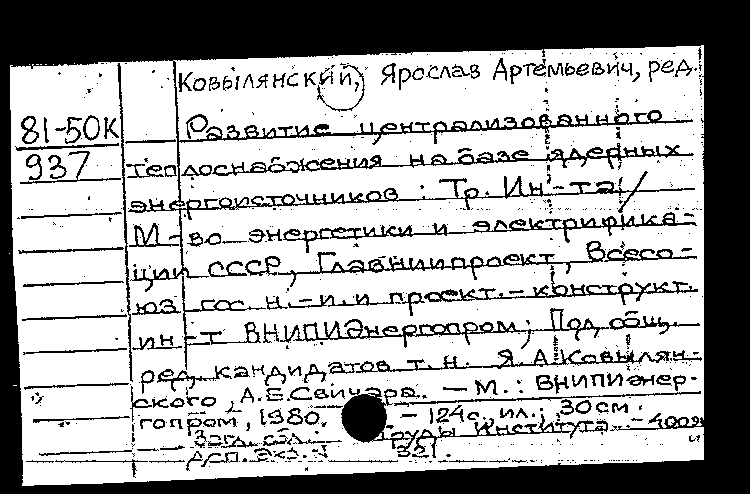 Ковылянский, Ярослав Артемьевич, ред.
81-50К
937
Развитие централизованного
теплоснабжения на базе ядерных
энергоисточников : Тр. Ин-та/
М-во энергетики и электрифика-
ции СССР, Главниипроект, Всесо-
юз. гос. н.-и. и проект.-конструкт.
ин-т ВНИПИЭнергопром; Под общ.
ред. кандидатов т. н. Я. А. Ковылян-
ского, А.Б.Свичара. — М.: ВНИПИэнер-
гопром, 1980. – 124с., ил.; 30см.
Загл. обл.: Труды Института. – 400э
321.